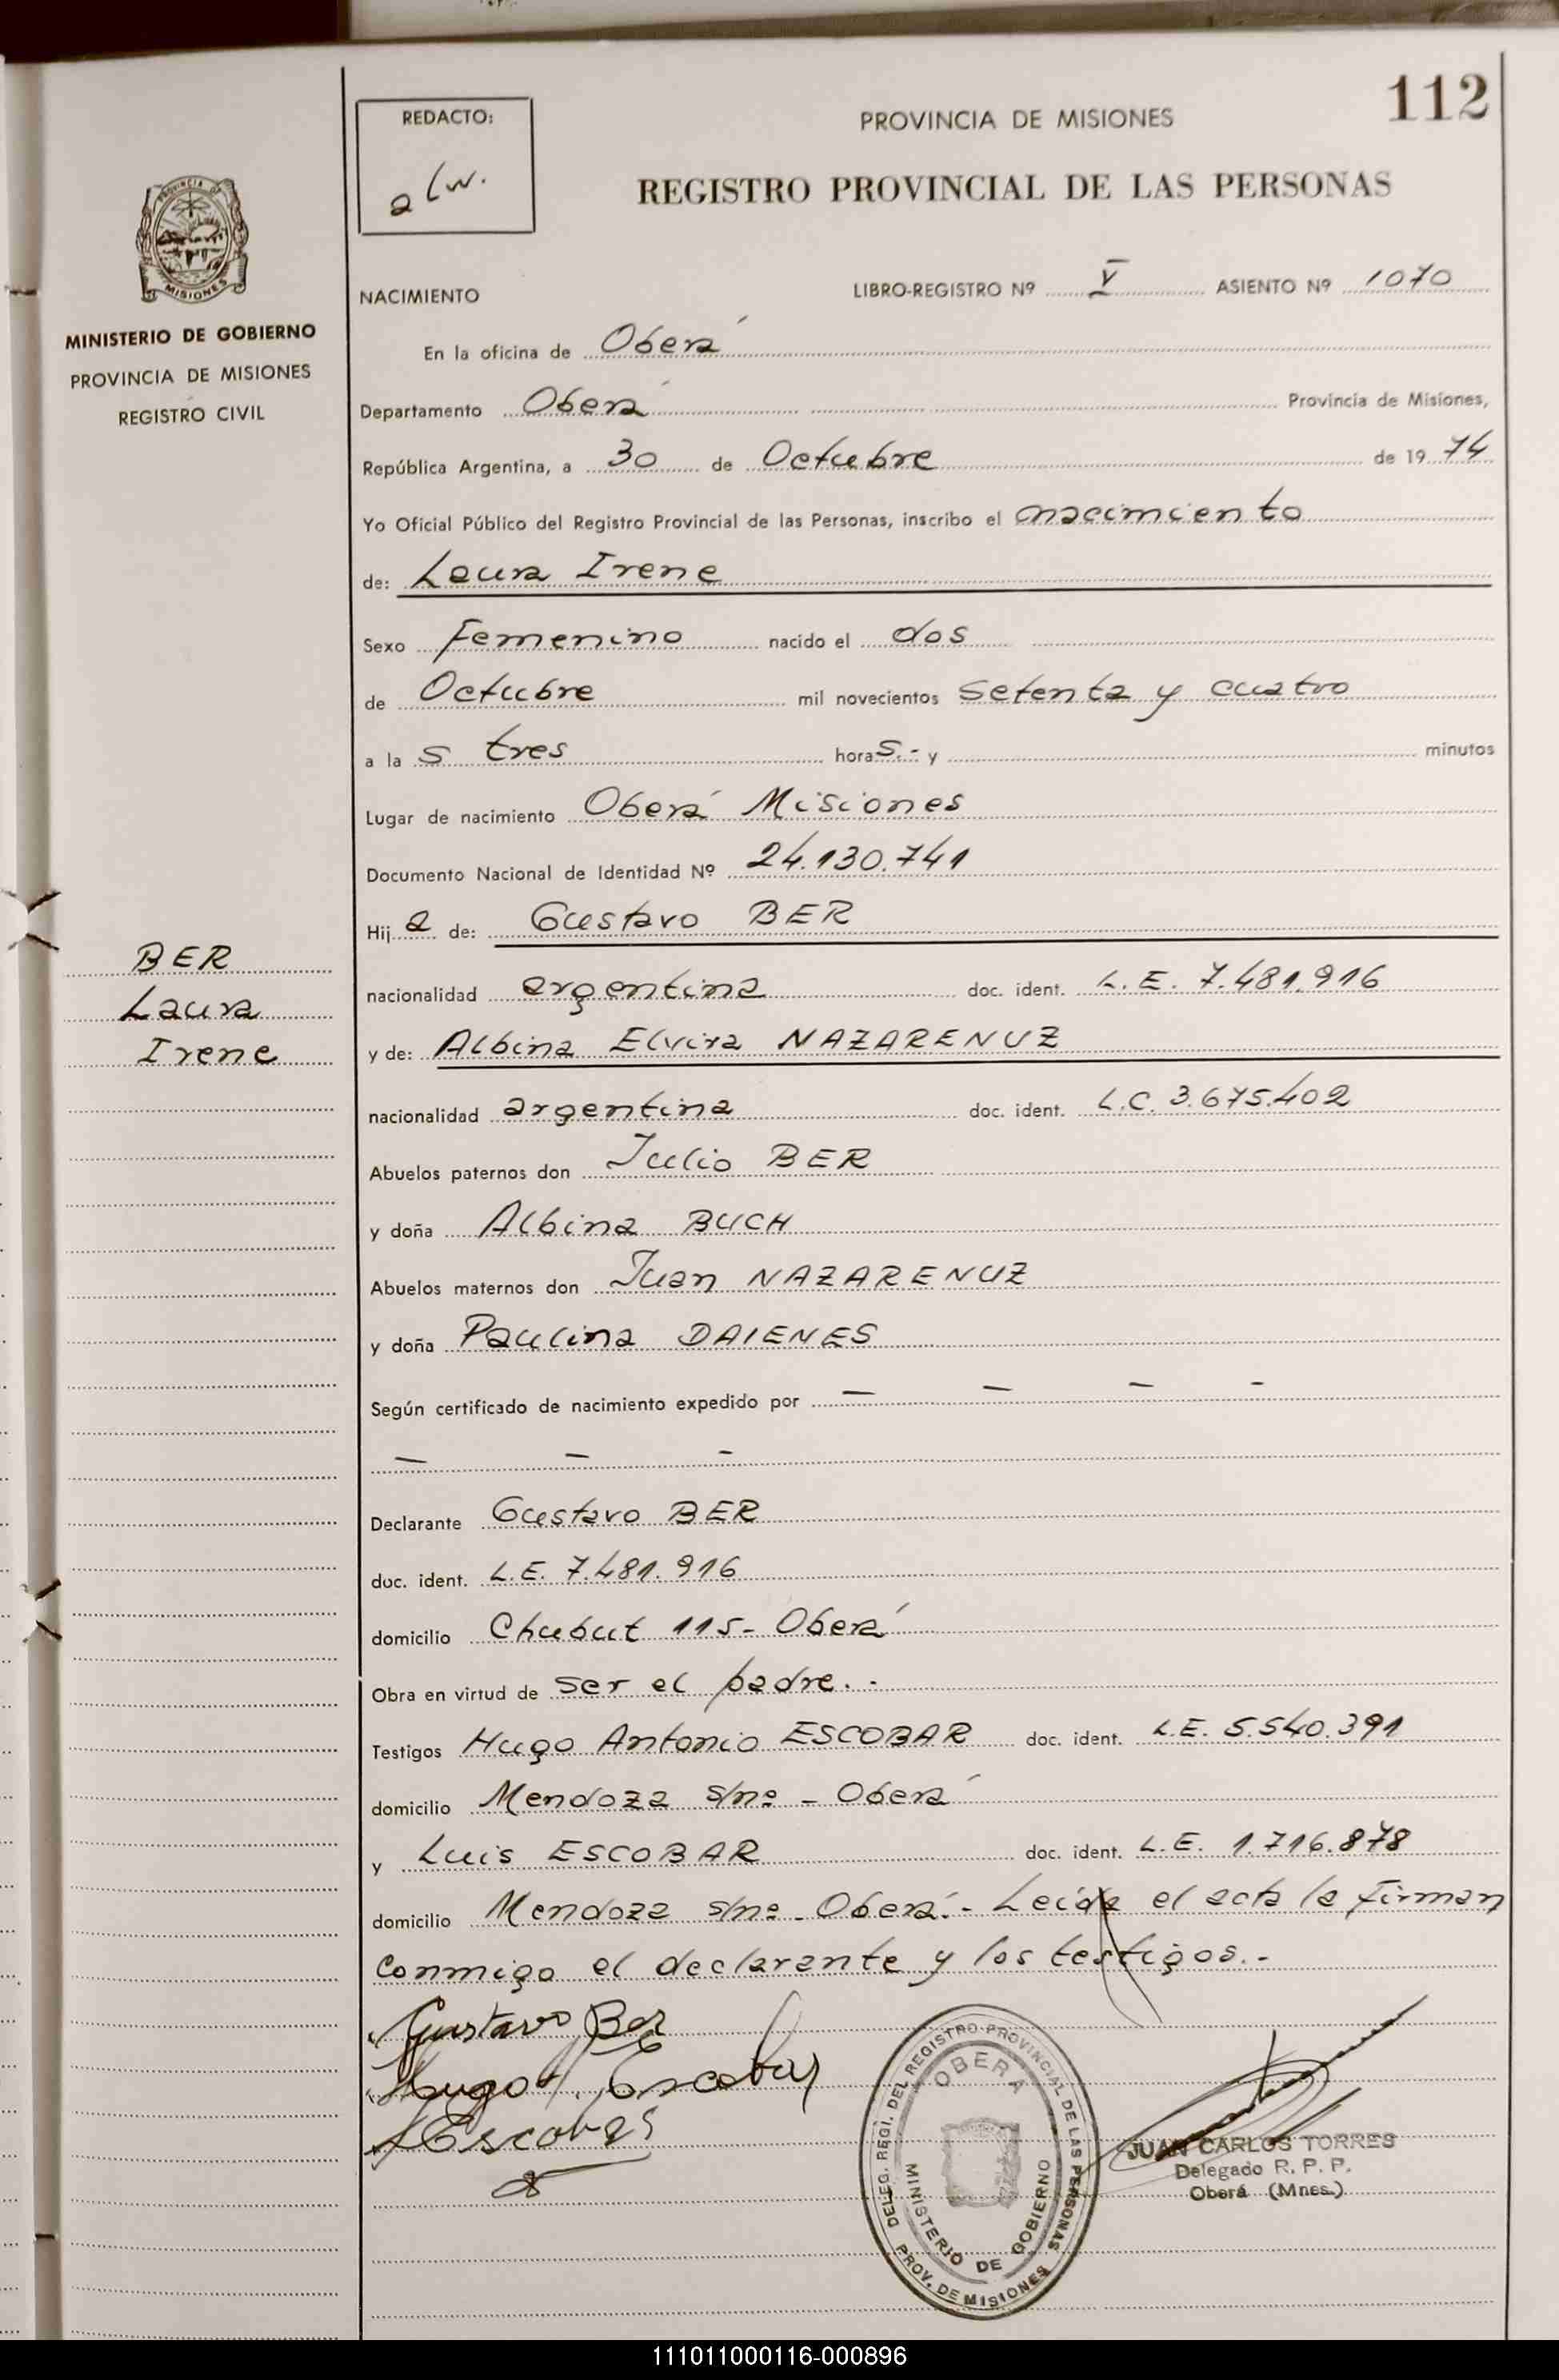 112
REDACTO:
alw.
PROVINCIA DE MISIONES
REGISTRO PROVINCIAL DE LAS PERSONAS
PROVINCIA DE
MISIONES
MINISTERIO DE GOBIERNO
PROVINCIA DE MISIONES
REGISTRO CIVIL
NACIMIENTO LIBRO-REGISTRO Nº V ASIENTO Nº 1070
En la oficina de Oberá
Departamento Oberá Provincia de Misiones,
República Argentina, a 30 de Octubre de 1974
Yo Oficial Público del Registro Provincial de las Personas, inscribo el nacimiento
de: Laura Irene
Sexo Femenino nacido el dos
de Octubre mil novecientos setenta y cuatro
a la s tres horas.- y minutos
Lugar de nacimiento Oberá Misiones
Documento Nacional de Identidad Nº 24.130.741
Hija de: Gustavo BER
BER
Laura
Irene
nacionalidad argentina doc. ident. L.E. 7.481.916
y de: Albina Elvira NAZARENUZ
nacionalidad argentina doc. ident. L.C. 3.675.402
Abuelos paternos don Julio BER
y doña Albina BUCH
Abuelos maternos don Juan NAZARENUZ
y doña Paulina DAIENES
Según certificado de nacimiento expedido por — — — -
— — -
Declarante Gustavo BER
doc. ident. L.E. 7.481.916
domicilio Chubut 115- Oberá
Obra en virtud de ser el padre.-
Testigos Hugo Antonio ESCOBAR doc. ident. L.E. 5.540.391
domicilio Mendoza s/nº - Oberá
y Luis ESCOBAR doc. ident. L.E. 1.716.878
domicilio Mendoza s/nº - Oberá.- Leída el acta la firman
conmigo el declarante y los testigos.-
Gustavo Ber
Hugo A. Escobar
L Escobar
DELEG. REGI. DEL REGISTRO PROVINCIAL DE LAS PERSONAS
PROV. DE MISIONES
OBERA
MINISTERIO DE GOBIERNO
JUAN CARLOS TORRES
Delegado R. P. P.
Oberá (Mnes.)
111011000116-000896